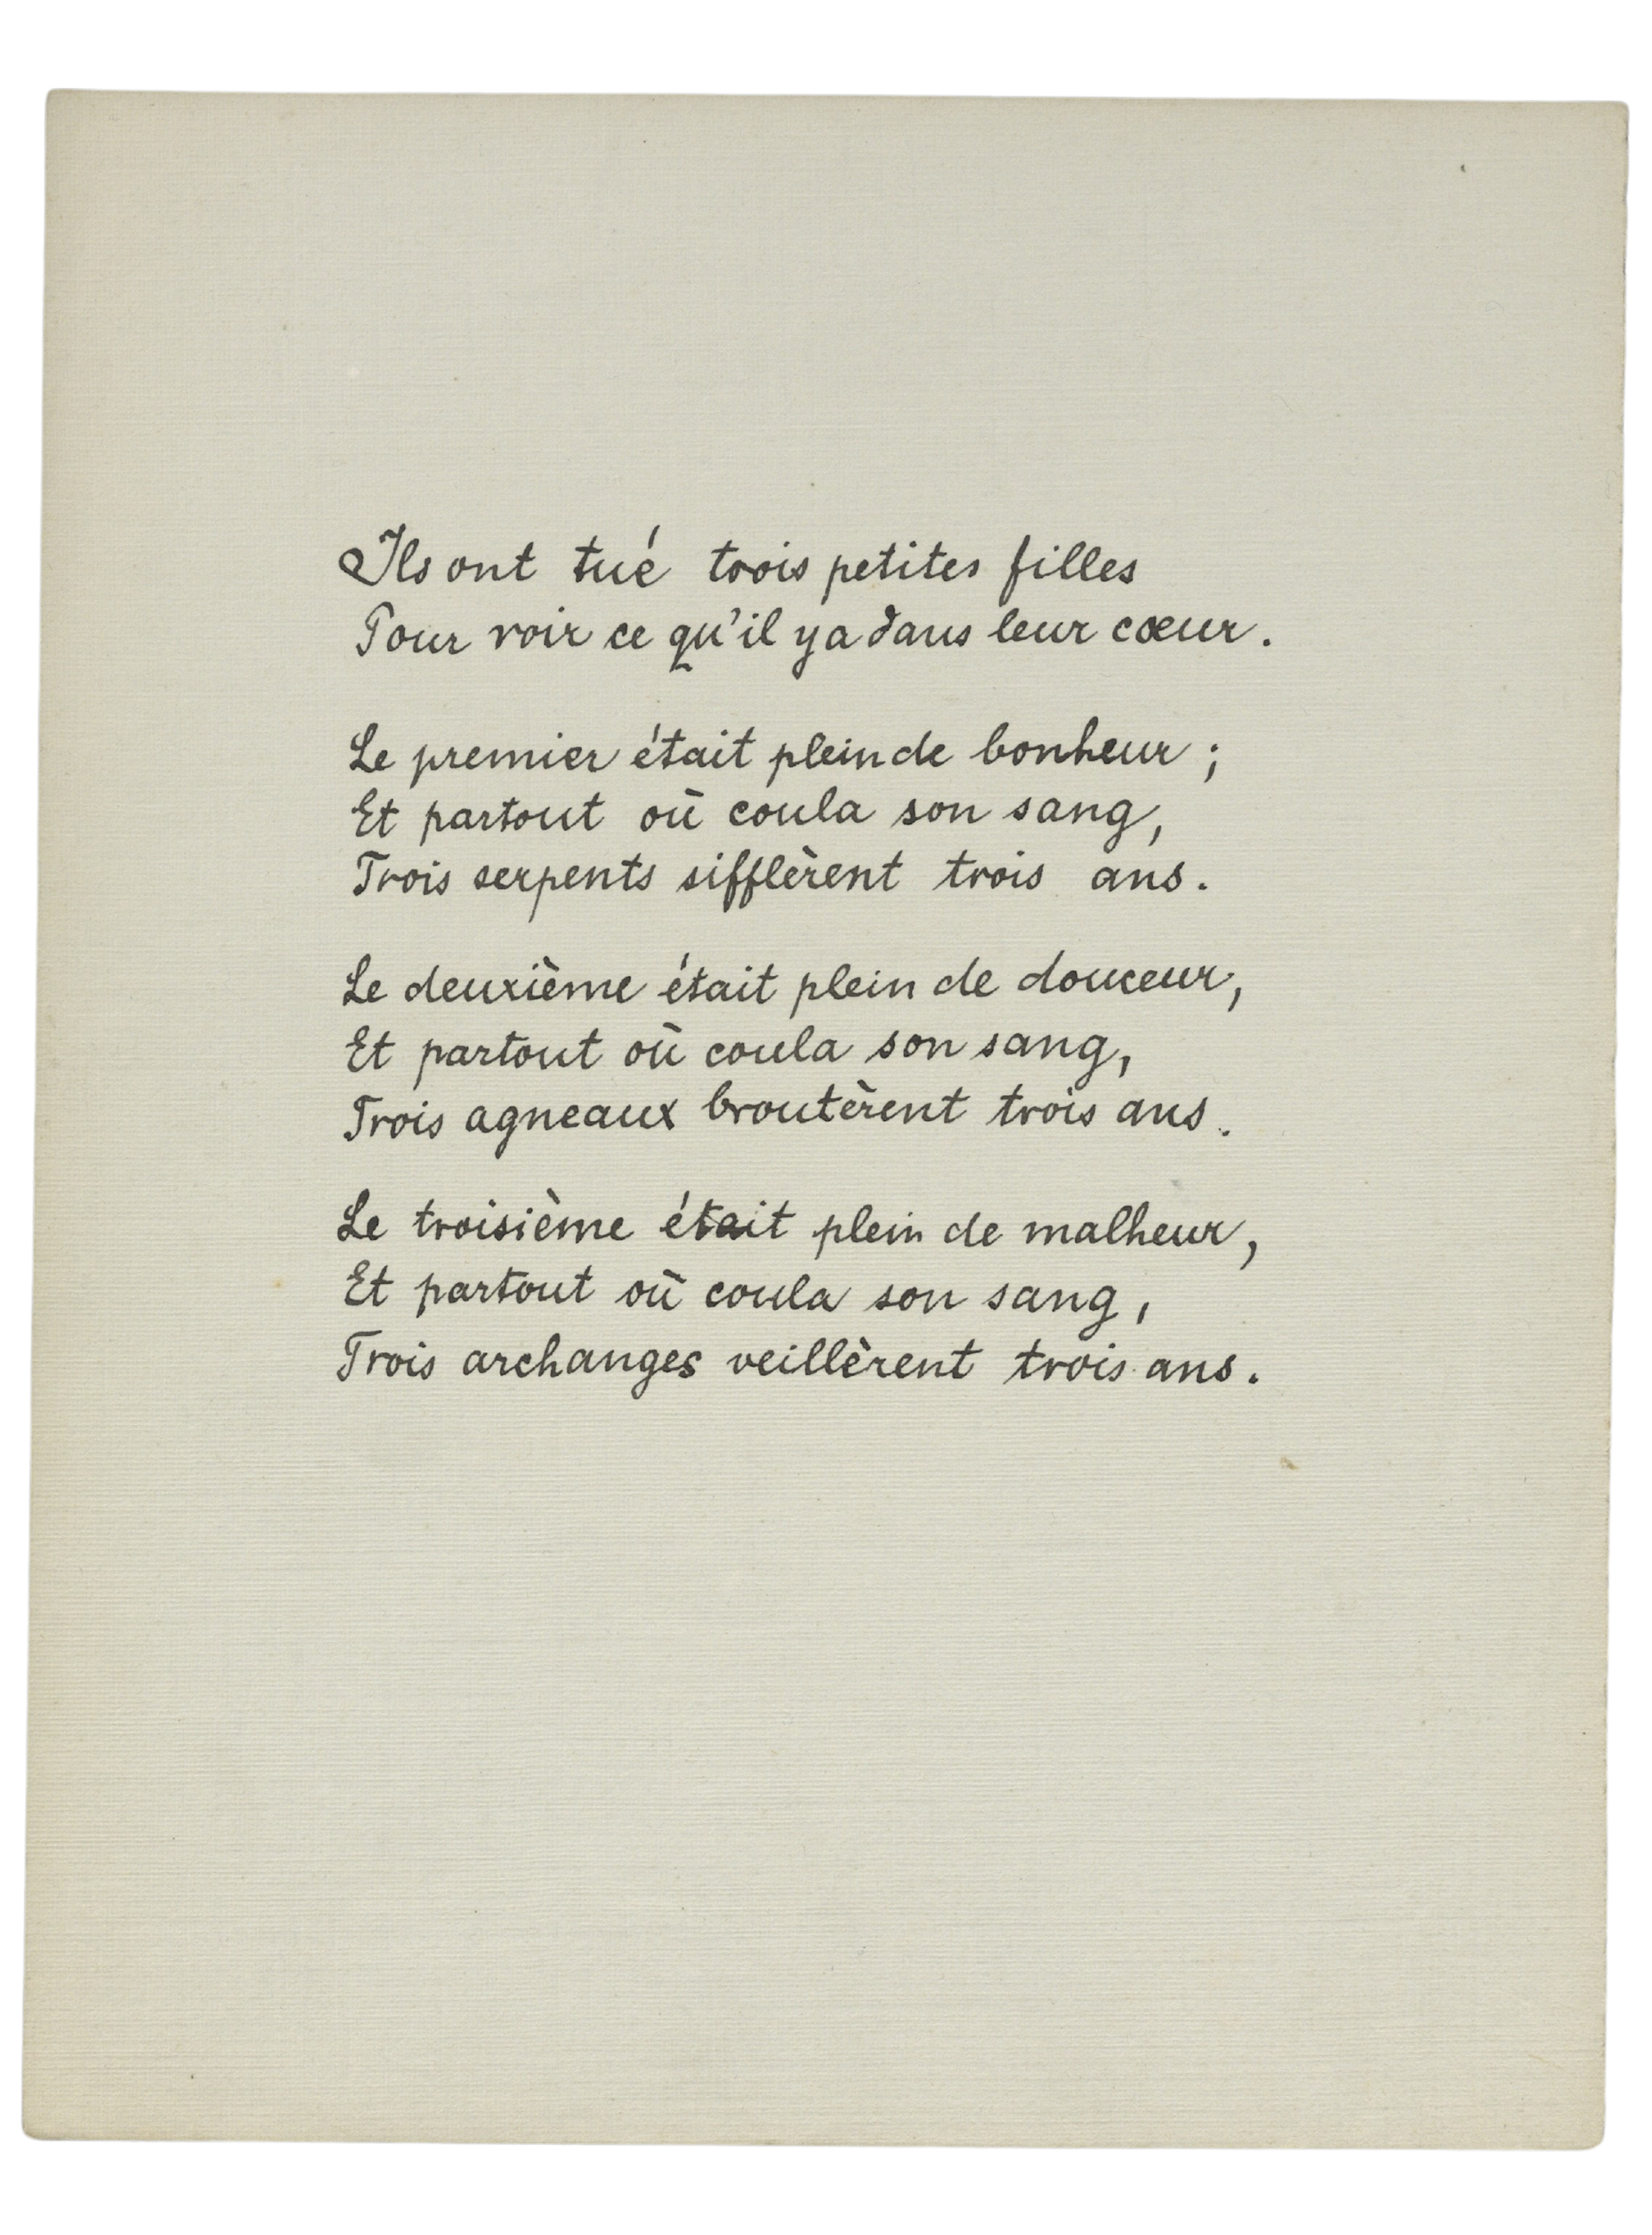 Ils ont tué trois petites filles
Pour voir ce qu'il y a dans leur cœur.
Le premier était plein de bonheur ;
Et partout où coula son sang,
Trois serpents sifflèrent trois ans.
Le deuxième était plein de douceur,
Et partout où coula son sang,
Trois agneaux broutèrent trois ans.
Le troisième était plein de malheur,
Et partout où coula son sang,
Trois archanges veillèrent trois ans.